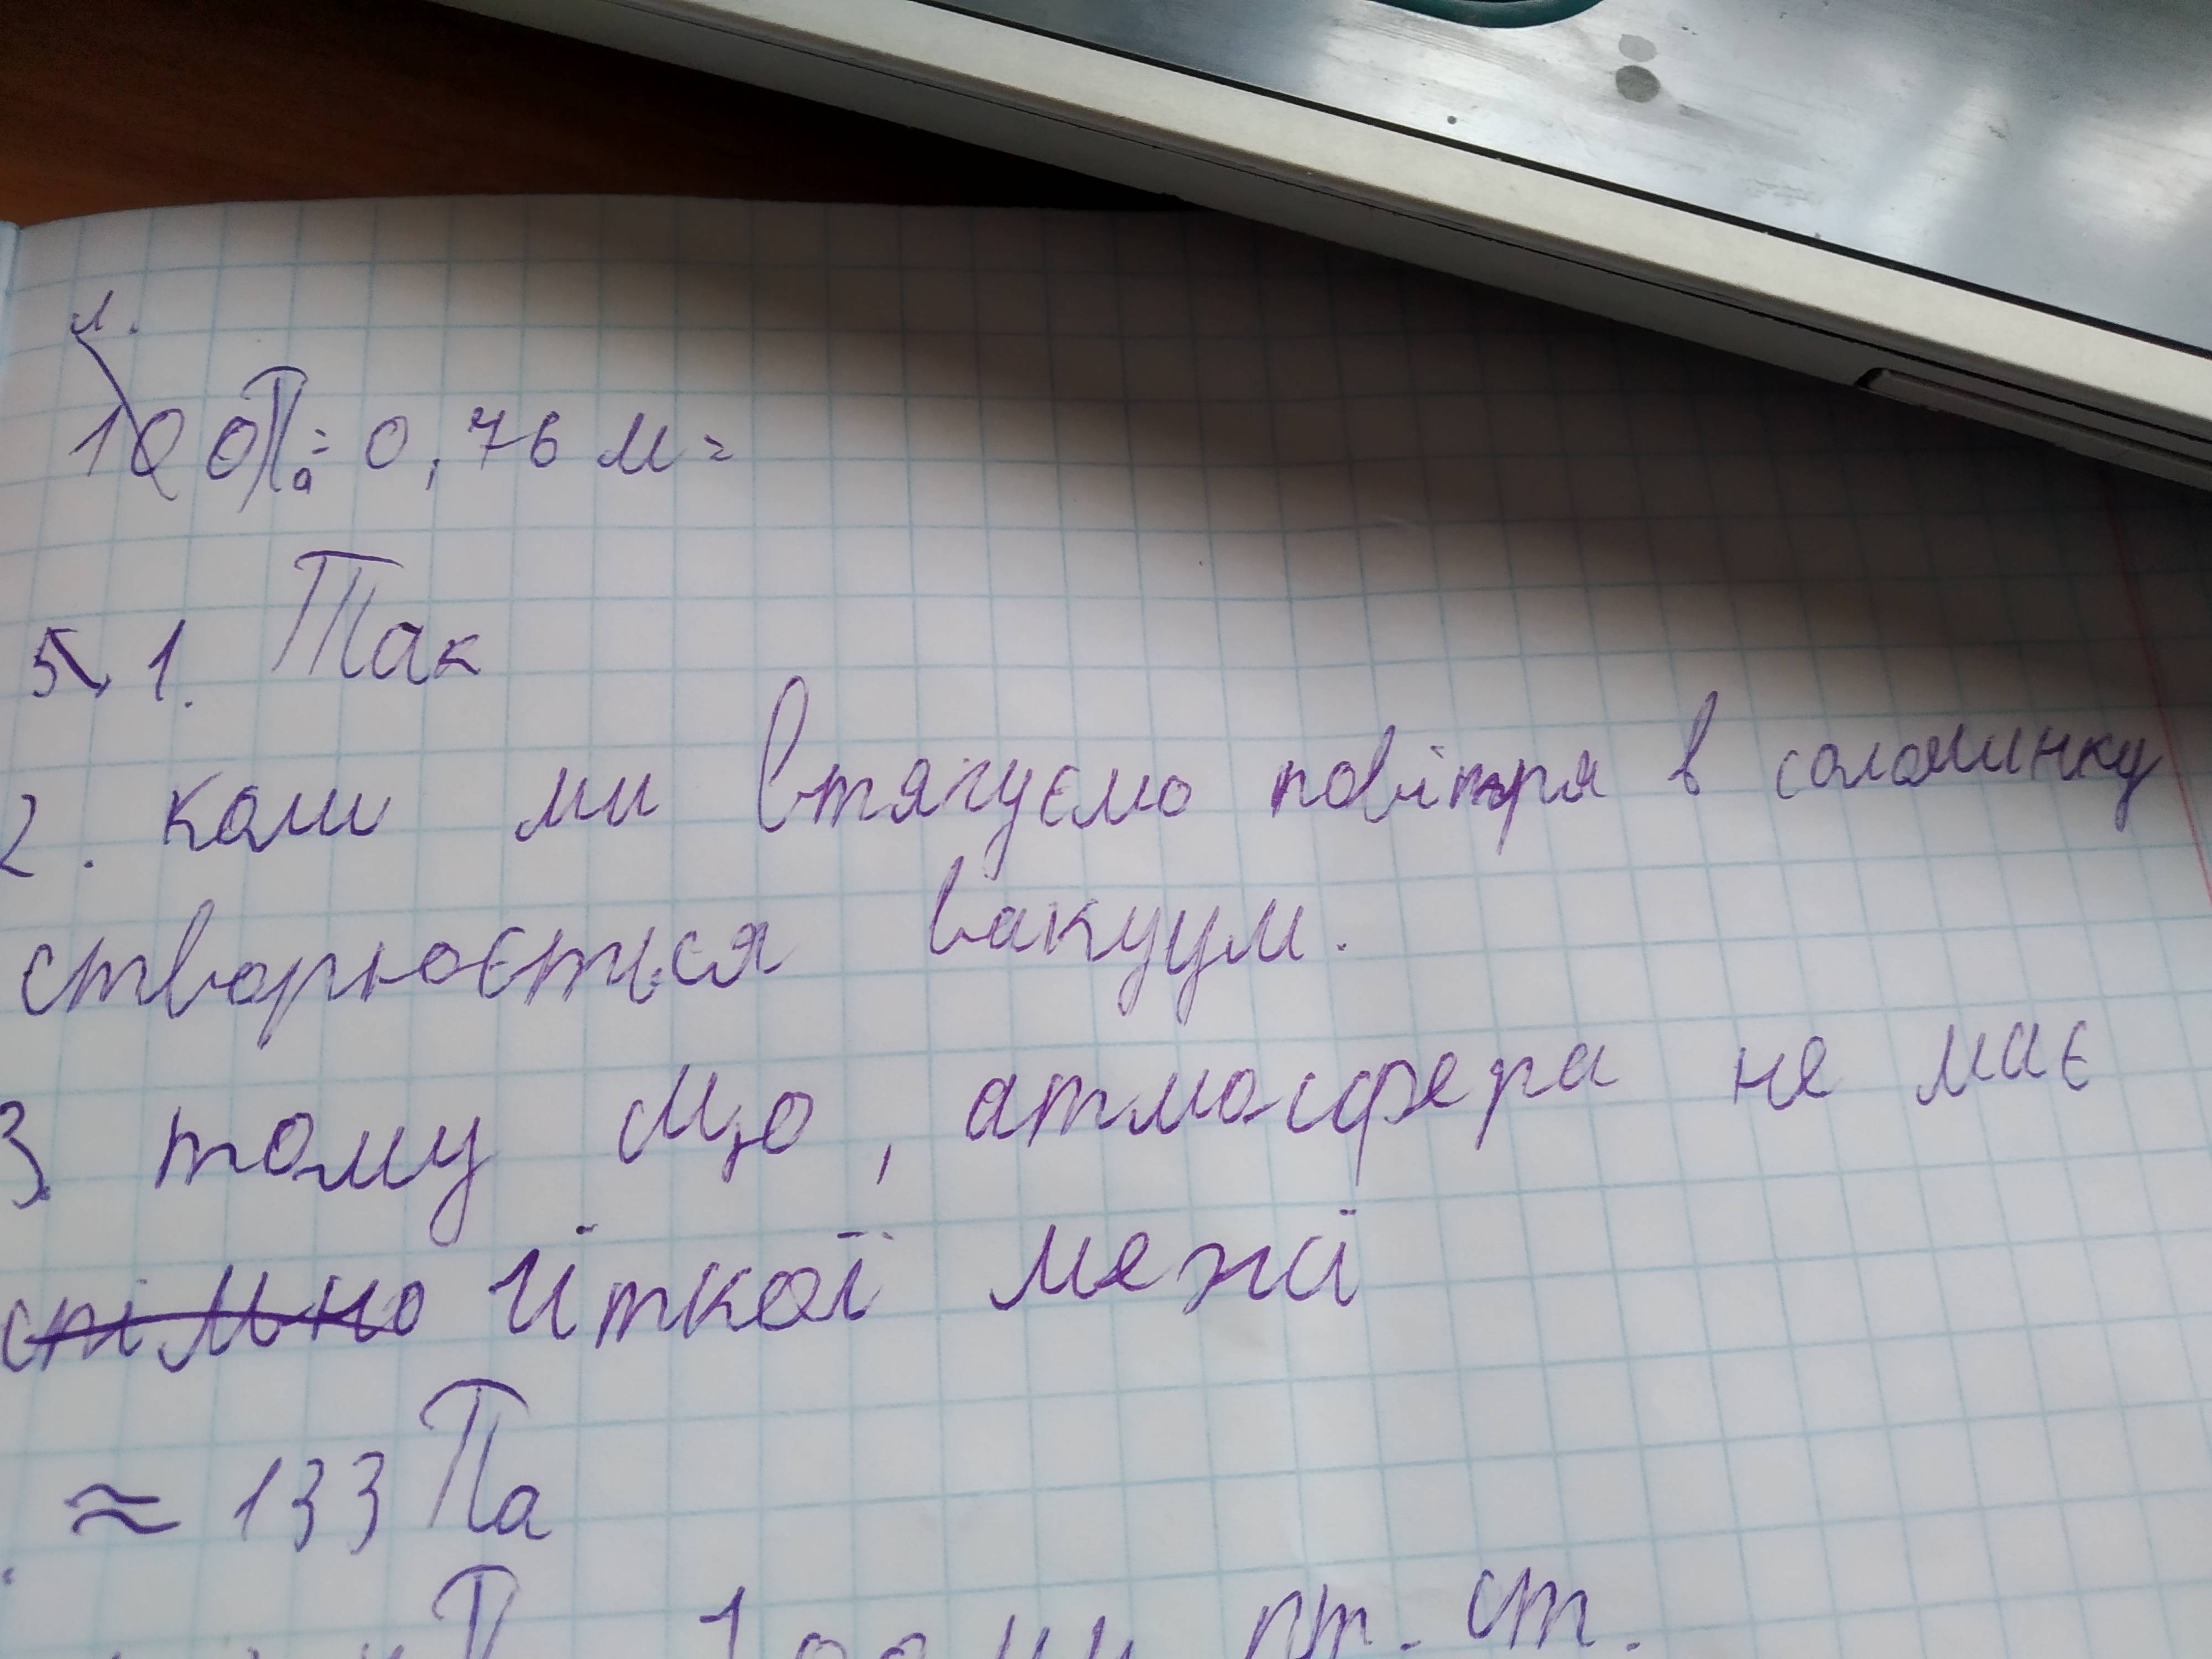 1.
100Па = 0,76 м =
5. 1. Так
2. коли ми втягуємо повітря в соломинку
створюється вакуум.
3. тому що, атмосфера не має
спільно чіткої межі
≈ 133 Па
рт. ст.